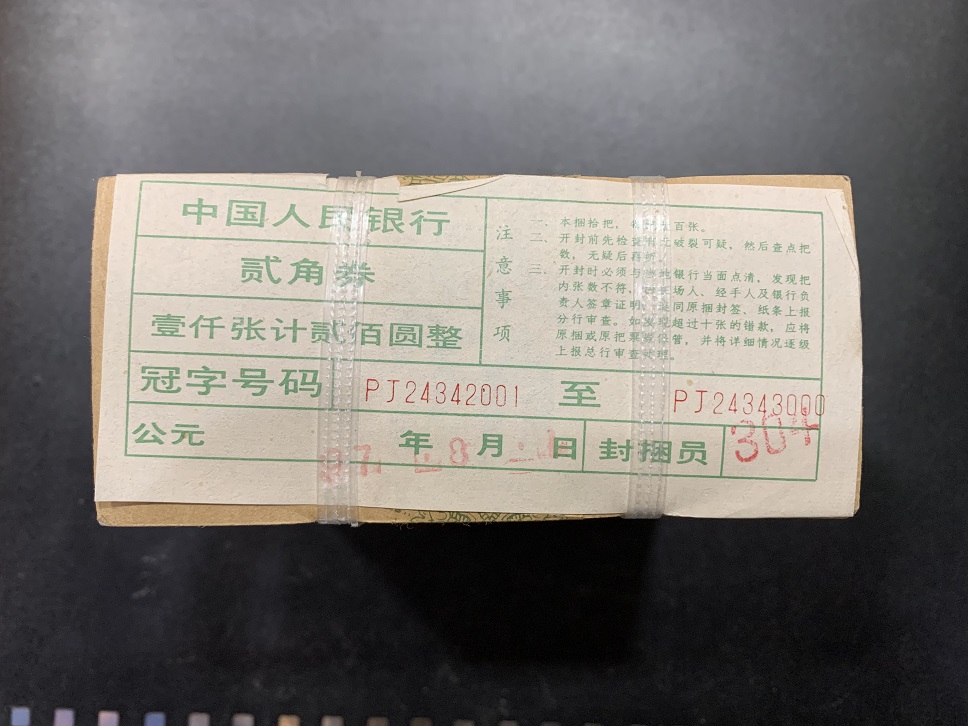 中国人民银行
贰角券
壹仟张计贰佰圆整
注意事项
一、本捆拾把，百张。
二、开封前先检查有破裂可疑，然后查点把
数，无疑后再
三、开封时必须与银行当面点清，发现把
内张数不符，场人、经手人及银行负
责人签章证明，同原捆封签、纸条上报
分行审查。如发现超过十张的错款，应将
原捆或原把管，并将详细情况逐级
上报总行审查处理。
冠字号码 PJ24342001 至 PJ24343000
公元 年 8 月 日 封捆员 304